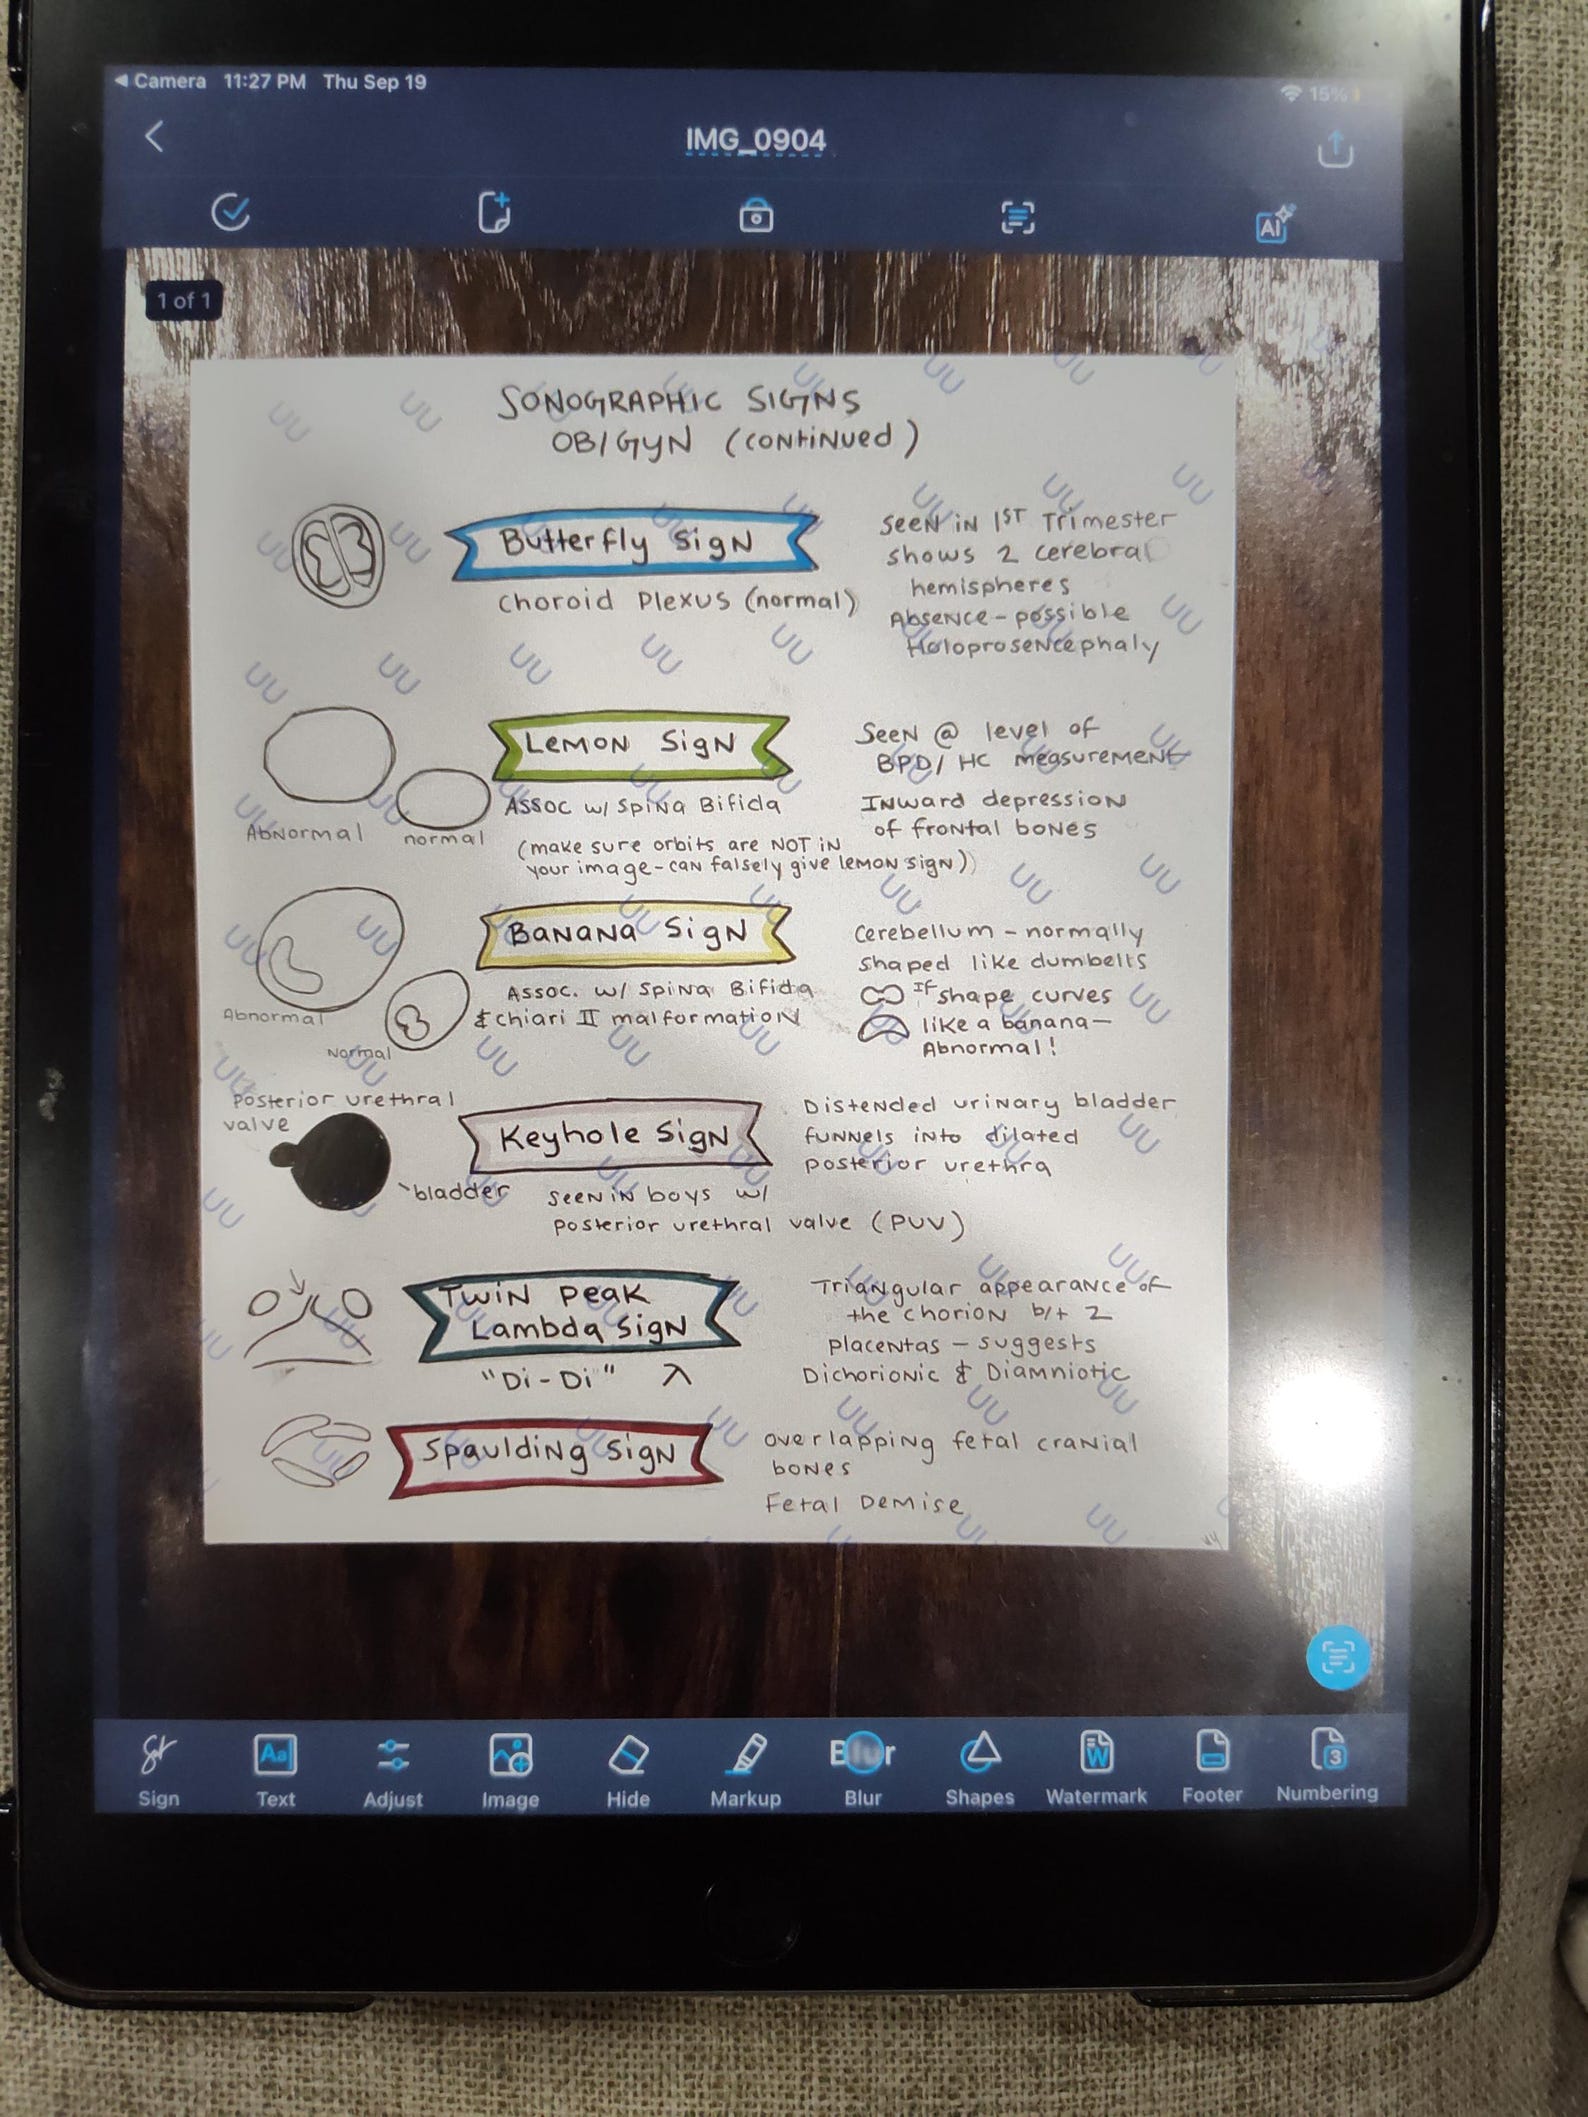 Camera 11:27 PM Thu Sep 19
15%
IMG_0904
AI
1 of 1
SONOGRAPHIC SIGNS
OB/GYN (CONTINUED)
Butterfly Sign
Choroid Plexus (normal)
Seen in 1ST Trimester
shows 2 cerebral
hemispheres
Absence - possible
Holoprosencephaly
Lemon Sign
Abnormal
normal
Assoc w/ Spina Bifida
(make sure orbits are NOT in
your image - can falsely give lemon sign)
Seen @ level of
BPD/HC measurement
Inward depression
of frontal bones
Banana Sign
Abnormal
Normal
Assoc. w/ Spina Bifida
& chiari II malformation
Cerebellum - normally
shaped like dumbells
If shape curves
like a banana -
Abnormal!
Posterior urethral
valve
bladder
Keyhole Sign
seen in boys w/
posterior urethral valve (PUV)
Distended urinary bladder
funnels into dilated
posterior urethra
Twin Peak
Lambda Sign
"Di-Di" λ
Triangular appearance of
the chorion b/t 2
placentas - suggests
Dichorionic & Diamniotic
Spaulding Sign
overlapping fetal cranial
bones
Fetal Demise
UU UU UU UU UU UU
Sign Text Adjust Image Hide Markup Blur Shapes Watermark Footer Numbering